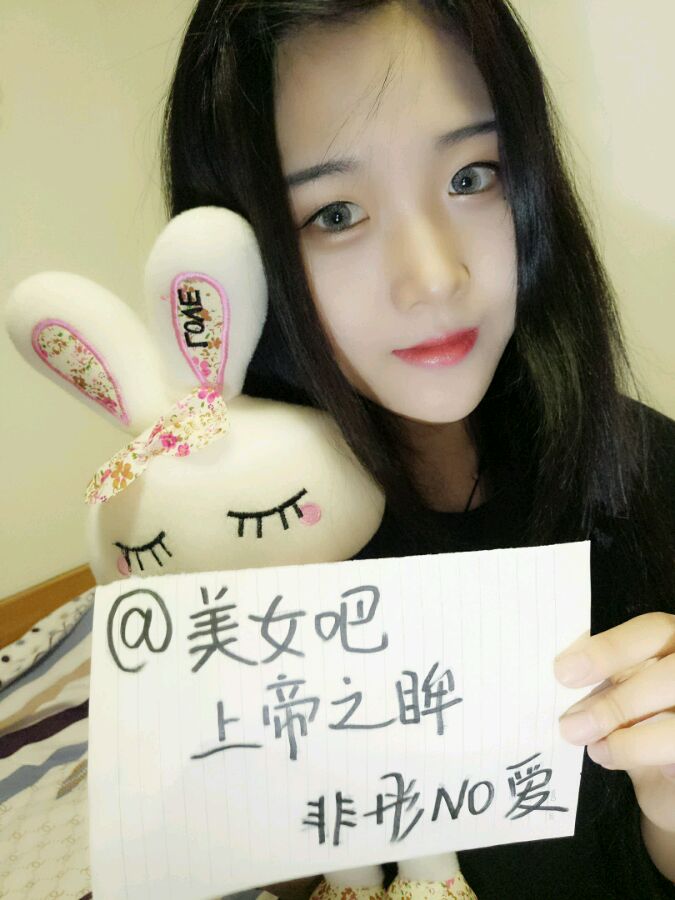 LOVE
@美女吧
上帝之眸
非彤NO爱